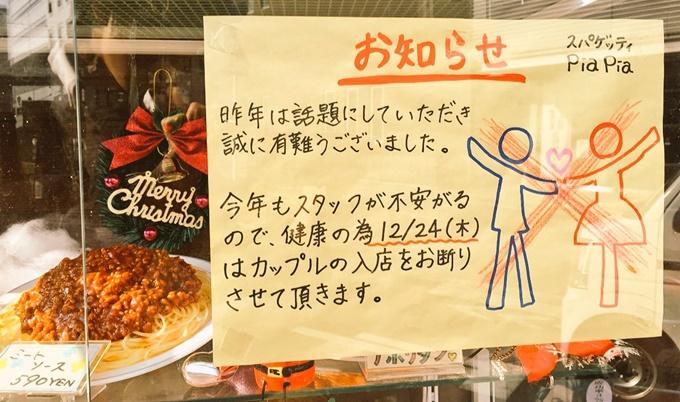 お知らせ
スパゲッティ
PiaPia
昨年は話題にしていただき
誠に有難うございました。
今年もスタッフが不安がる
ので、健康の為12/24(木)
はカップルの入店をお断り
させて頂きます。
Merry
Christmas
ミートソース
590YEN